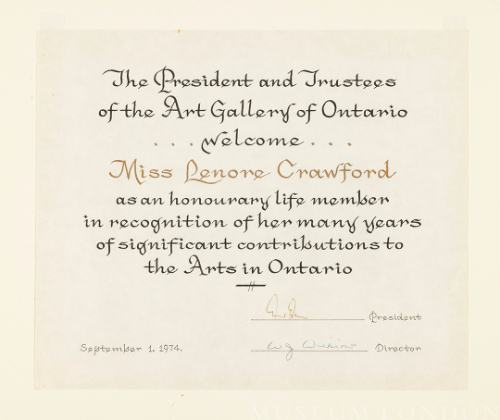 The President and Trustees
of the Art Gallery of Ontario
... welcome ...
Miss Lenore Crawford
as an honourary life member
in recognition of her many years
of significant contributions to
the Arts in Ontario
President
September 1. 1974.
Director
MUSEUM LONDON